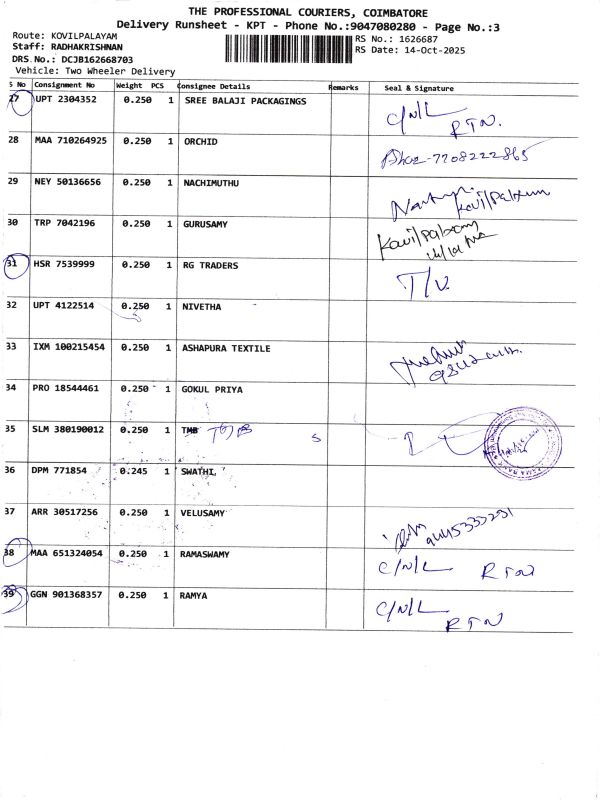 THE PROFESSIONAL COURIERS, COIMBATORE
Delivery Runsheet - KPT - Phone No.:9047080280 - Page No.:3
Route: KOVILPALAYAM
RS No.: 1626687
Staff: RADHAKRISHNAN
RS Date: 14-Oct-2025
DRS.No.: DCJB162668703
Vehicle: Two Wheeler Delivery
S No Consignment No Weight PCS Consignee Details Remarks Seal & Signature
27 UPT 2304352 0.250 1 SREE BALAJI PACKAGINGS C/N/L RTN.
28 MAA 710264925 0.250 1 ORCHID 7708222865
29 NEY 50136656 0.250 1 NACHIMUTHU
30 TRP 7042196 0.250 1 GURUSAMY
31 HSR 7539999 0.250 1 RG TRADERS
32 UPT 4122514 0.250 1 NIVETHA
33 IXM 100215454 0.250 1 ASHAPURA TEXTILE
34 PRO 18544461 0.250 1 GOKUL PRIYA
35 SLM 380190012 0.250 1 TMB
36 DPM 771854 0.245 1 SWATHI,
37 ARR 30517256 0.250 1 VELUSAMY
38 MAA 651324054 0.250 1 RAMASWAMY C/N/L RTN
39 GGN 901368357 0.250 1 RAMYA C/N/L RTN